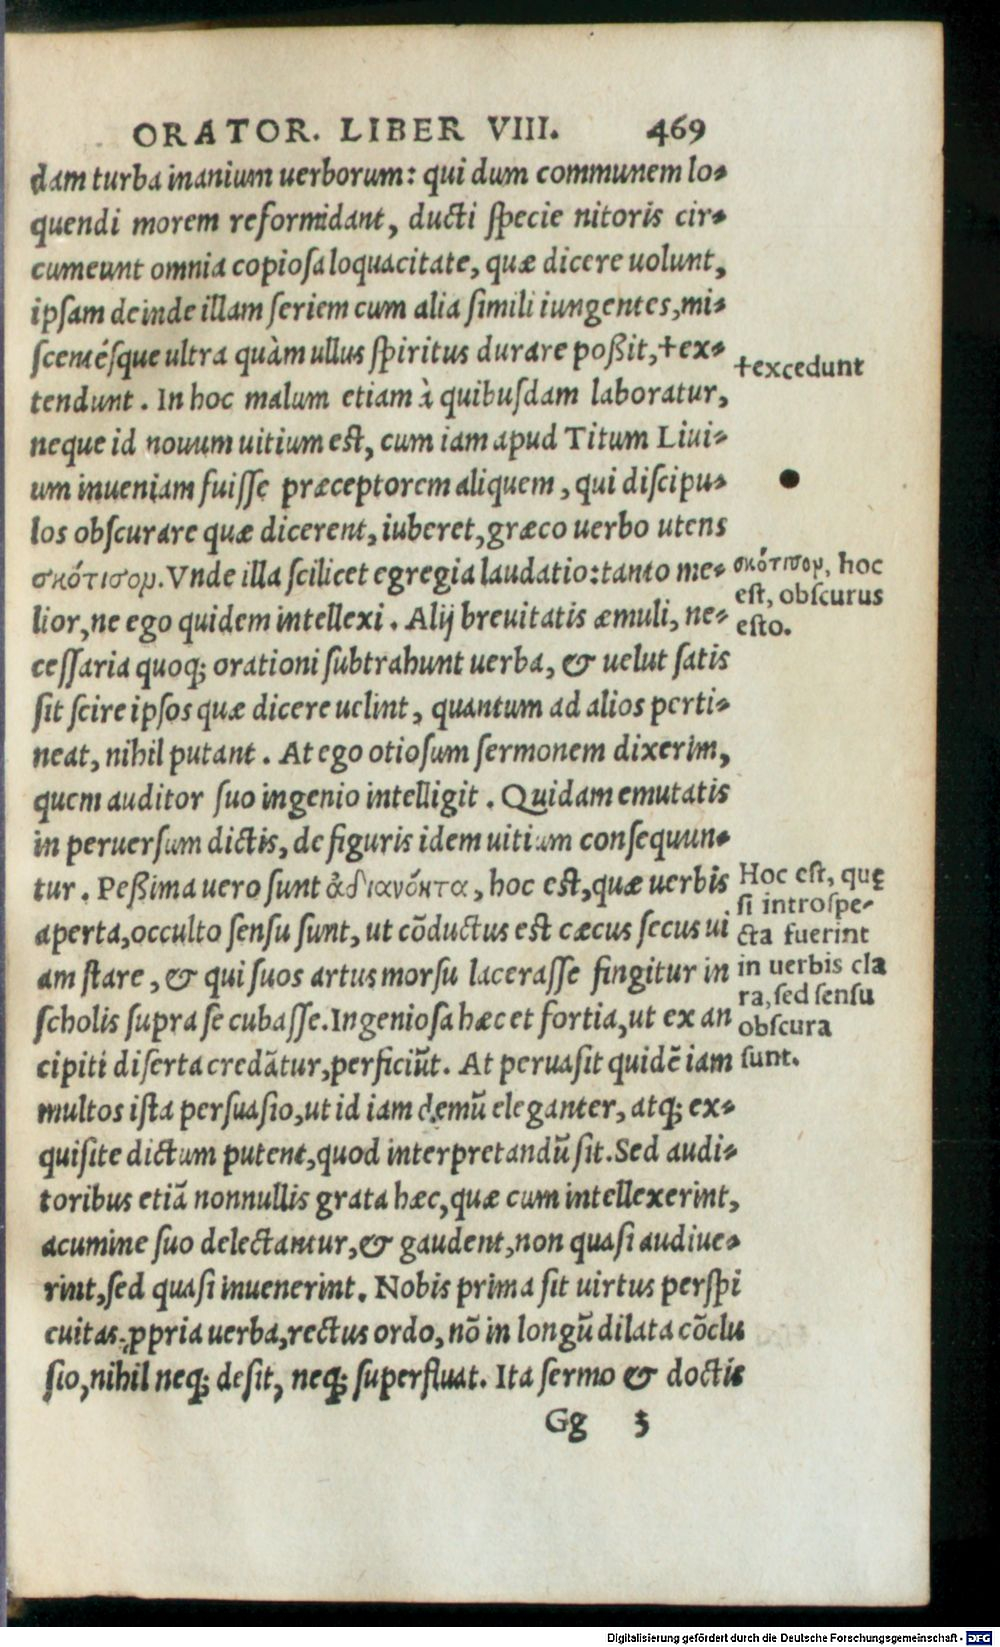 ORATOR. LIBER VIII. 469
dam turba inanium uerborum: qui dum communem lo-
quendi morem reformidant, ducti specie nitoris cir-
cumeunt omnia copiosa loquacitate, quæ dicere uolunt,
ipsam deinde illam seriem cum alia simili iungentes, mi-
scentésque ultra quàm ullus spiritus durare poßit, †ex-
tendunt. In hoc malum etiam à quibusdam laboratur,
neque id nouum uitium est, cum iam apud Titum Liui-
um inueniam fuisse præceptorem aliquem, qui discipu-
los obscurare quæ dicerent, iuberet, græco uerbo utens
σκότισομ. Vnde illa scilicet egregia laudatio: tanto me-
lior, ne ego quidem intellexi. Alij breuitatis æmuli, ne-
cessaria quoq; orationi subtrahunt uerba, & uelut satis
sit scire ipsos quæ dicere uelint, quantum ad alios perti-
neat, nihil putant. At ego otiosum sermonem dixerim,
quem auditor suo ingenio intelligit. Quidam emutatis
in peruersum dictis, de figuris idem uitium consequun-
tur. Peßima uero sunt ἀδιανόητα, hoc est, quæ uerbis
aperta, occulto sensu sunt, ut cōductus est cæcus secus ui
am stare, & qui suos artus morsu lacerasse fingitur in
scholis supra se cubasse. Ingeniosa hæc et fortia, ut ex an
cipiti diserta credātur, perficiūt. At peruasit quidē iam
multos ista persuasio, ut id iam demū eleganter, atq; ex-
quisite dictum putent, quod interpretandū sit. Sed audi-
toribus etiā nonnullis grata hæc, quæ cum intellexerint,
acumine suo delectantur, & gaudent, non quasi audiue-
rint, sed quasi inuenerint. Nobis prima sit uirtus perspi
cuitas, ꝓpria uerba, rectus ordo, nō in longū dilata cōclu
sio, nihil neq; desit, neq; superfluat. Ita sermo & doctis
Gg 3
†excedunt
σκότισομ, hoc
est, obscurus
esto.
Hoc est, quę
si introspe-
cta fuerint
in uerbis cla
ra, sed sensu
obscura
sunt.
Digitalisierung gefördert durch die Deutsche Forschungsgemeinschaft - DFG